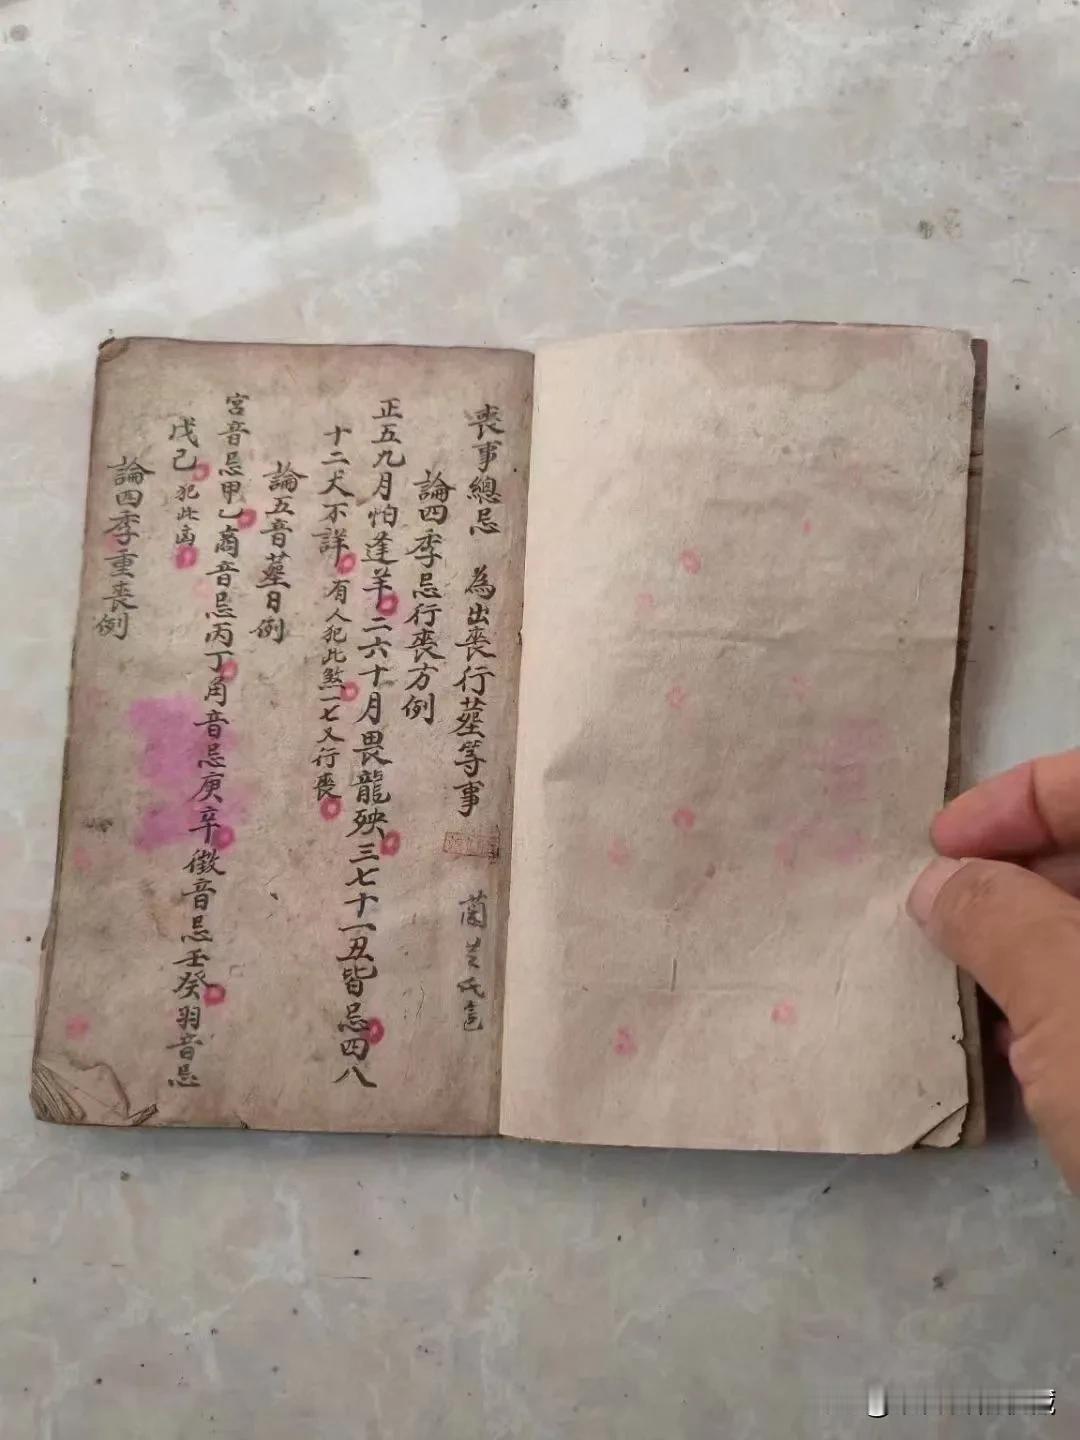 喪事總忌 為出喪行葬等事
論四季忌行喪方例
正五九月怕逢羊二六十月畏龍殃三七十一丑皆忌四八
十二犬不詳有人犯此煞一七又行喪
論五音葬日例
宮音忌甲乙商音忌丙丁角音忌庚辛徵音忌壬癸羽音忌
戊己犯此凶
論四季重喪例